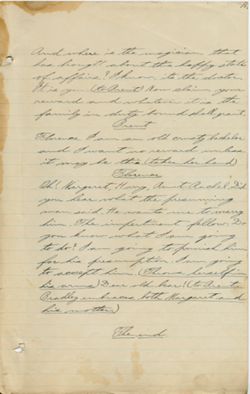 And where is the magician that
has brought about this happy state
of affairs? I know, its the doctor.
It is you (to Brent) Now claim your
reward and whatever it is the
family in duty bound shall grant.
Brent
Florence I am an old crusty bachelor
and I want no reward unless
it may be this (takes her hand)
Florence
Oh! Margaret, Harry, Aunt Rachel! Did
you hear what the presuming
man said. He wants me to marry
him. The impertinent fellow. Do
you know what I am going
to do? I am going to punish him
for his presumption. I am going
to accept him. (Throws herself in
his arms) Dear old bear! (to Brent.
Bradley embraces both Margaret and
his mother)
The end